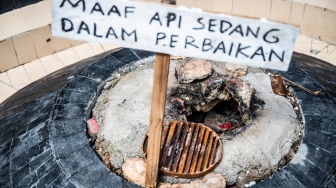 MAAF API SEDANG
DALAM PERBAIKAN